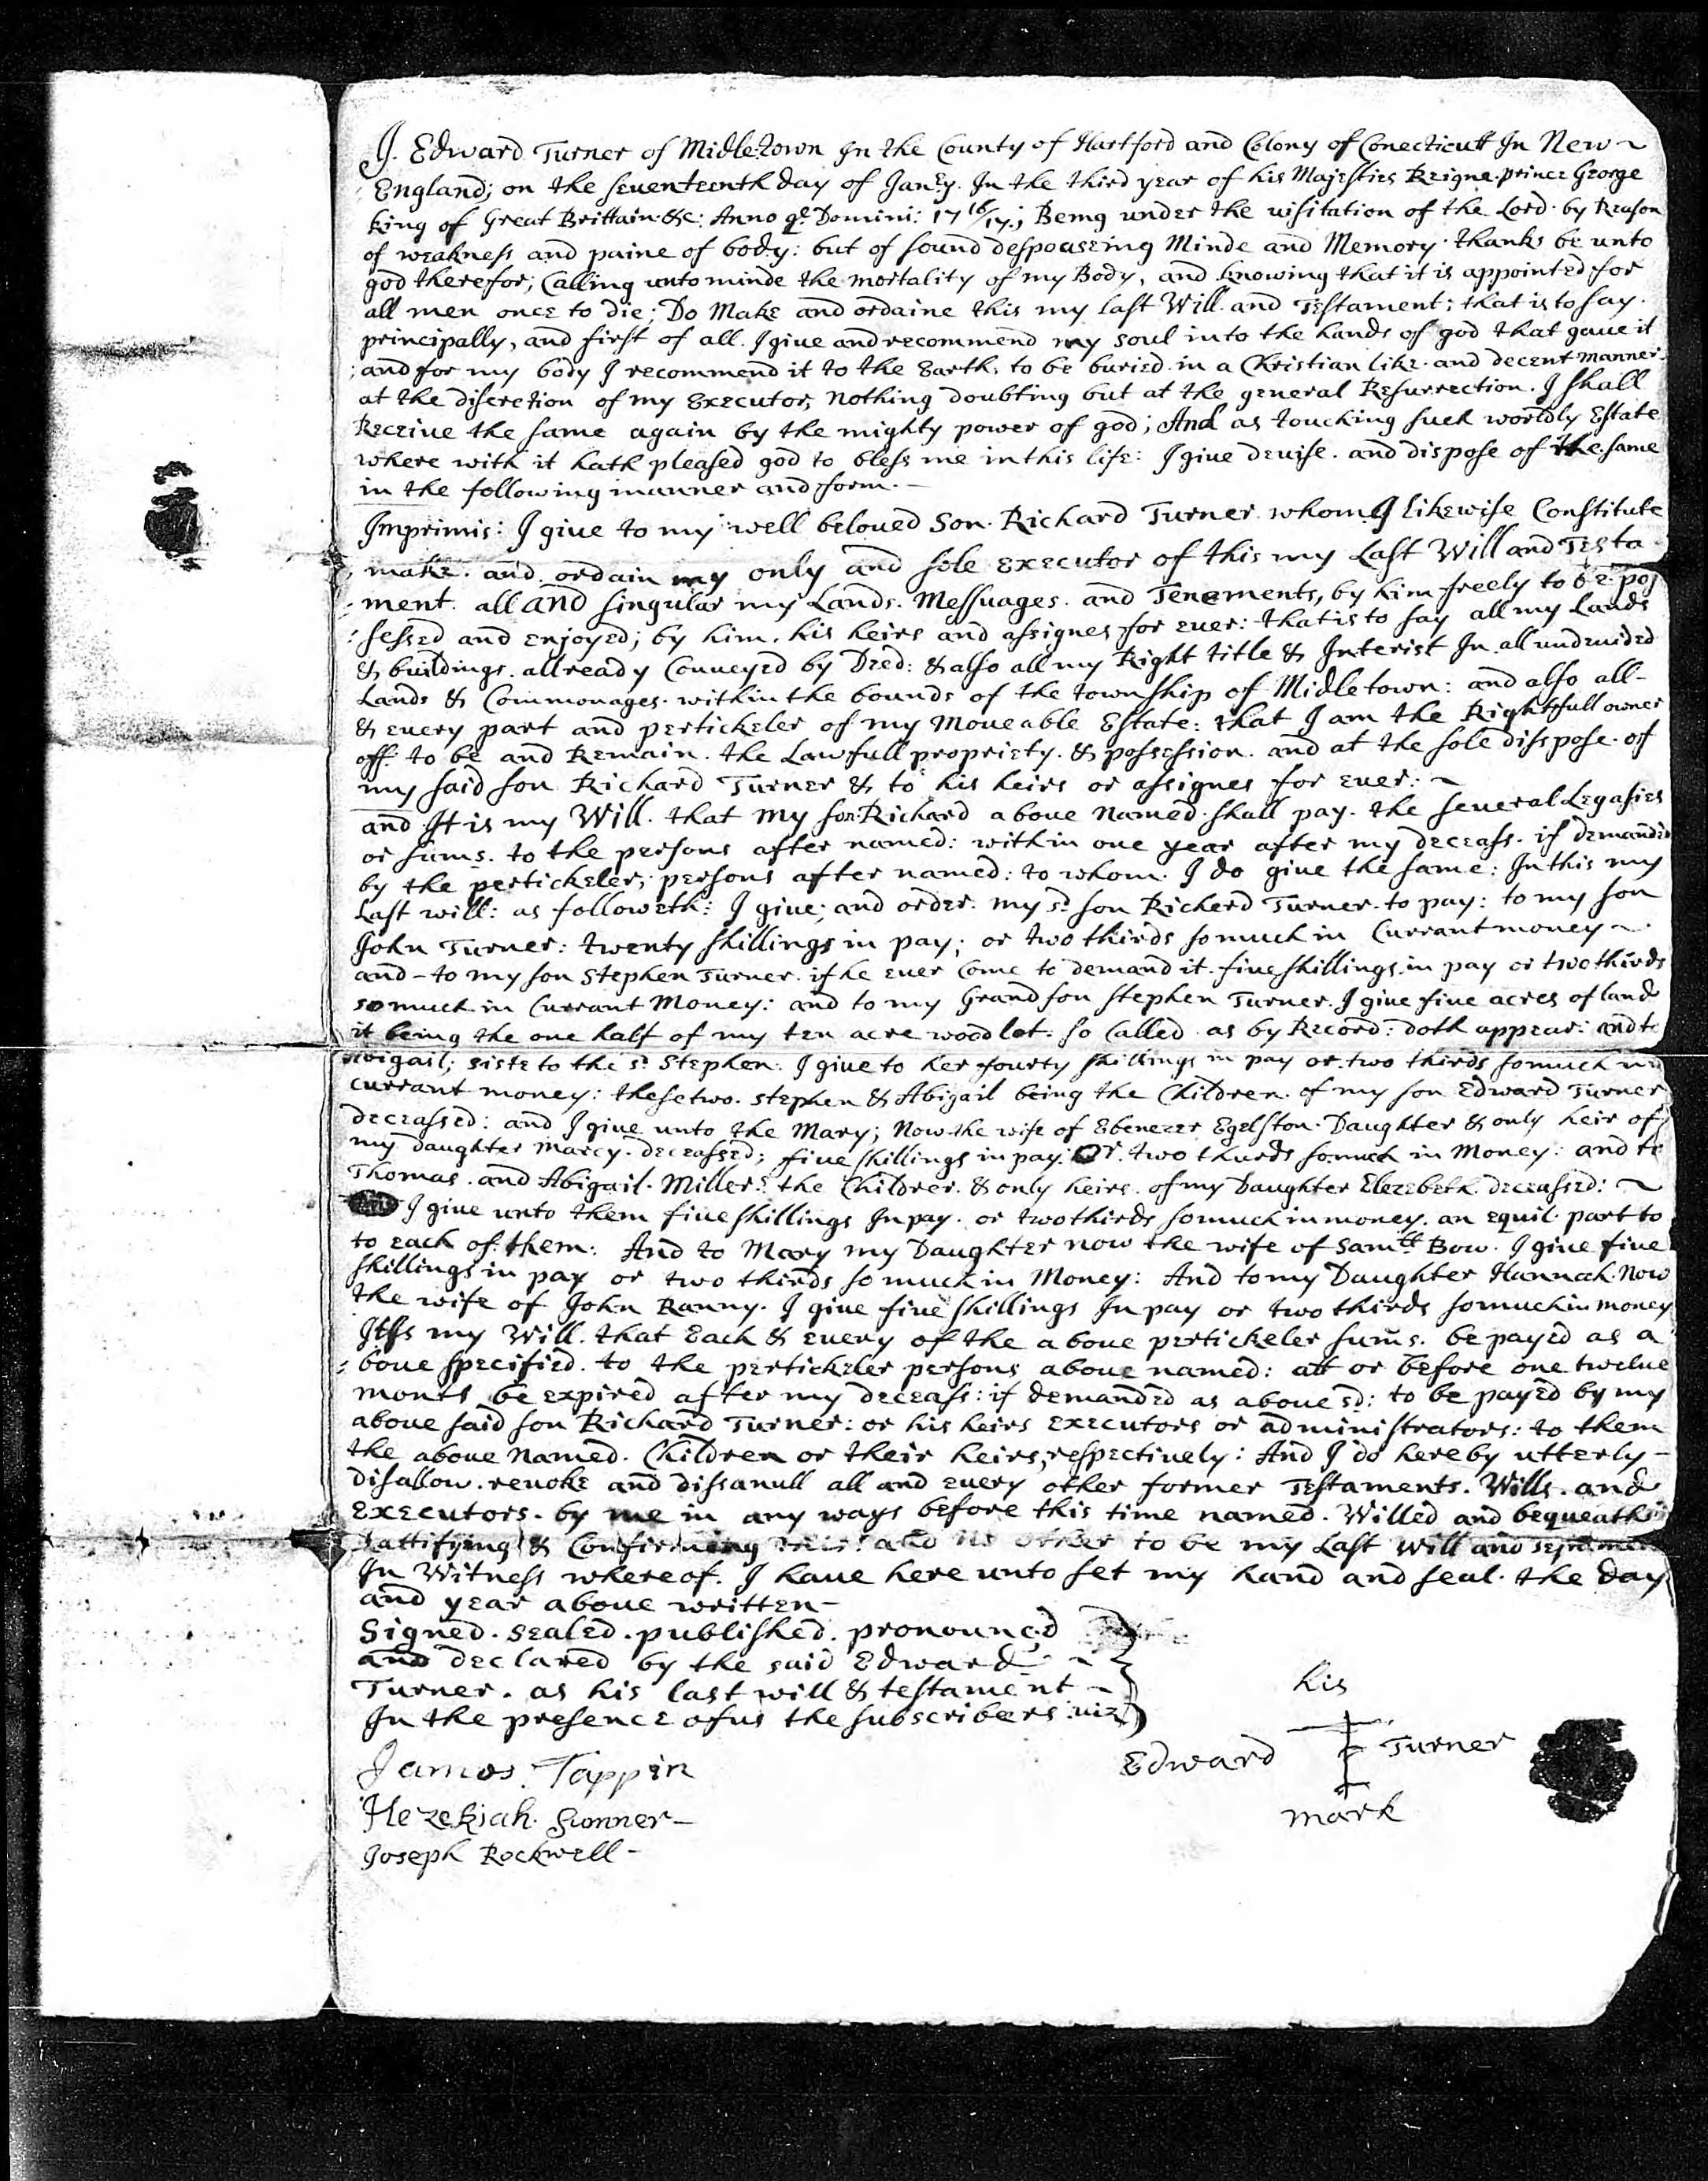 I. Edward Turner of Midletown In the County of Hartford and Colony of Conecticutt In New ~
England; on the seuenteenth day of Janry. In the third year of his Majesties Reigne prince George
king of Great Brittain &c: Anno qe Domini: 17 16/17; Being under the uisitation of the Lord by Reason
of weakness and paine of body: but of sound despoaseing Minde and Memory thanks be unto
god therefor; Calling unto minde the mortality of my Body, and knowing that it is appointed for
all men once to die; Do Make and ordaine this my last Will and Testament; that is to say.
principally, and first of all. I giue and recommend my soul into the hands of god that gaue it
; and for my body I recommend it to the Earth, to be buried in a Christian like and decent manner.
at the discretion of my Executor, nothing doubting but at the general Resurrection. I shall
Receiue the same again by the mighty power of god; And as touching such worldly Estate
where with it hath pleased god to bless me in this life: I giue deuise. and dispose of the same
in the following manner and form. —
Imprimis: I giue to my well beloued Son Richard Turner whom I likewise Constitute
make and ordain my only and sole executor of this my Last Will and Testa
ment. all and singular my Lands. Messuages. and Tenements, by him freely to be pos
sessed and enjoyed; by him. his heirs and assignes for euer: that is to say all my Lands
& buildings. allready Conueyed by Deed: & also all my Right title & Interist In all undeuided
Lands & Commonages within the bounds of the township of Midletown: and also all-
& euery part and pertickeler of my Moueable Estate: that I am the Rightfull owner
off. to be and Remain. the Lawfull propriety. & possession. and at the sole disspose of
my said son Richard Turner & to his heirs or assignes for euer: ~
and It is my Will. that my son Richard aboue Named shall pay. the seueral Legasies
or sums. to the persons after named: within one year after my deceass. if demanded
by the pertickeler, persons after named: to whom. I do giue the same: In this my
Last will: as followeth: I giue; and order. my sd son Richerd Turner. to pay: to my son
John Turner: twenty shillings in pay; or two thirds so much in Currant money ~
and - to my son Stephen Turner. if he euer Come to demand it. fiue shillings in pay or two thirds
so much in Currant Money: and to my Grand son Stephen Turner. I giue fiue acres of land
it being the one half of my ten acre wood lot: so Called as by Record: doth appear: and to
Abigail; siste to the sd Stephen. I giue to her fourty shillings in pay or two thirds so much in
currant money: these two. stephen & Abigail being the Children of my son Edward Turner
deceassed: and I giue unto the Mary; Now the wife of Ebenezer Egelston Daughter & only heir of
my daughter Marcy deceassed; fiue shillings in pay. Or. two thurds so much in Money: and to
Thomas. and Abigail. Millers the Children. & only heirs. of my Daughter Elezebeth. deceassed: ~
I giue unto them fiue shillings In pay. or two thirds so much in money. an equil part to
to each of them: And to Mary my Daughter now the wife of Samll Bow. I giue fiue
shillings in pay or two thirds so much in Money: And to my Daughter Hannah Now
the wife of John Ranny. I giue fiue shillings In pay or two thirds so much in money
It Is my Will. that Each & euery of the aboue pertickeler sums. be payed as a
boue specified to the pertickeler persons aboue named: att or before one twelue
monts be expired after my deceass: if demanded as aboue sd: to be payed by my
aboue said son Richard Turner: or his heirs executors or administrators: to them
the aboue Named. Children or their heirs, respectiuely: And I do hereby utterly -
disallow. reuoke and dissanull all and euery other former Testaments. Wills. and
Executors. by me in any ways before this time named. Willed and bequeathed
Rattifying & Confirming this: and no other to be my Last will and
In Witness whereof. I haue here unto set my hand and seal. the day
and year aboue written -
Signed. Sealed. published. pronounced
and declared by the said Edward ~
Turner. as his last will & testament ~
In the presence of us the subscribers uiz
his
Edward Turner
mark
James Tappin
Hezekiah Sumner -
Joseph Rockwell -